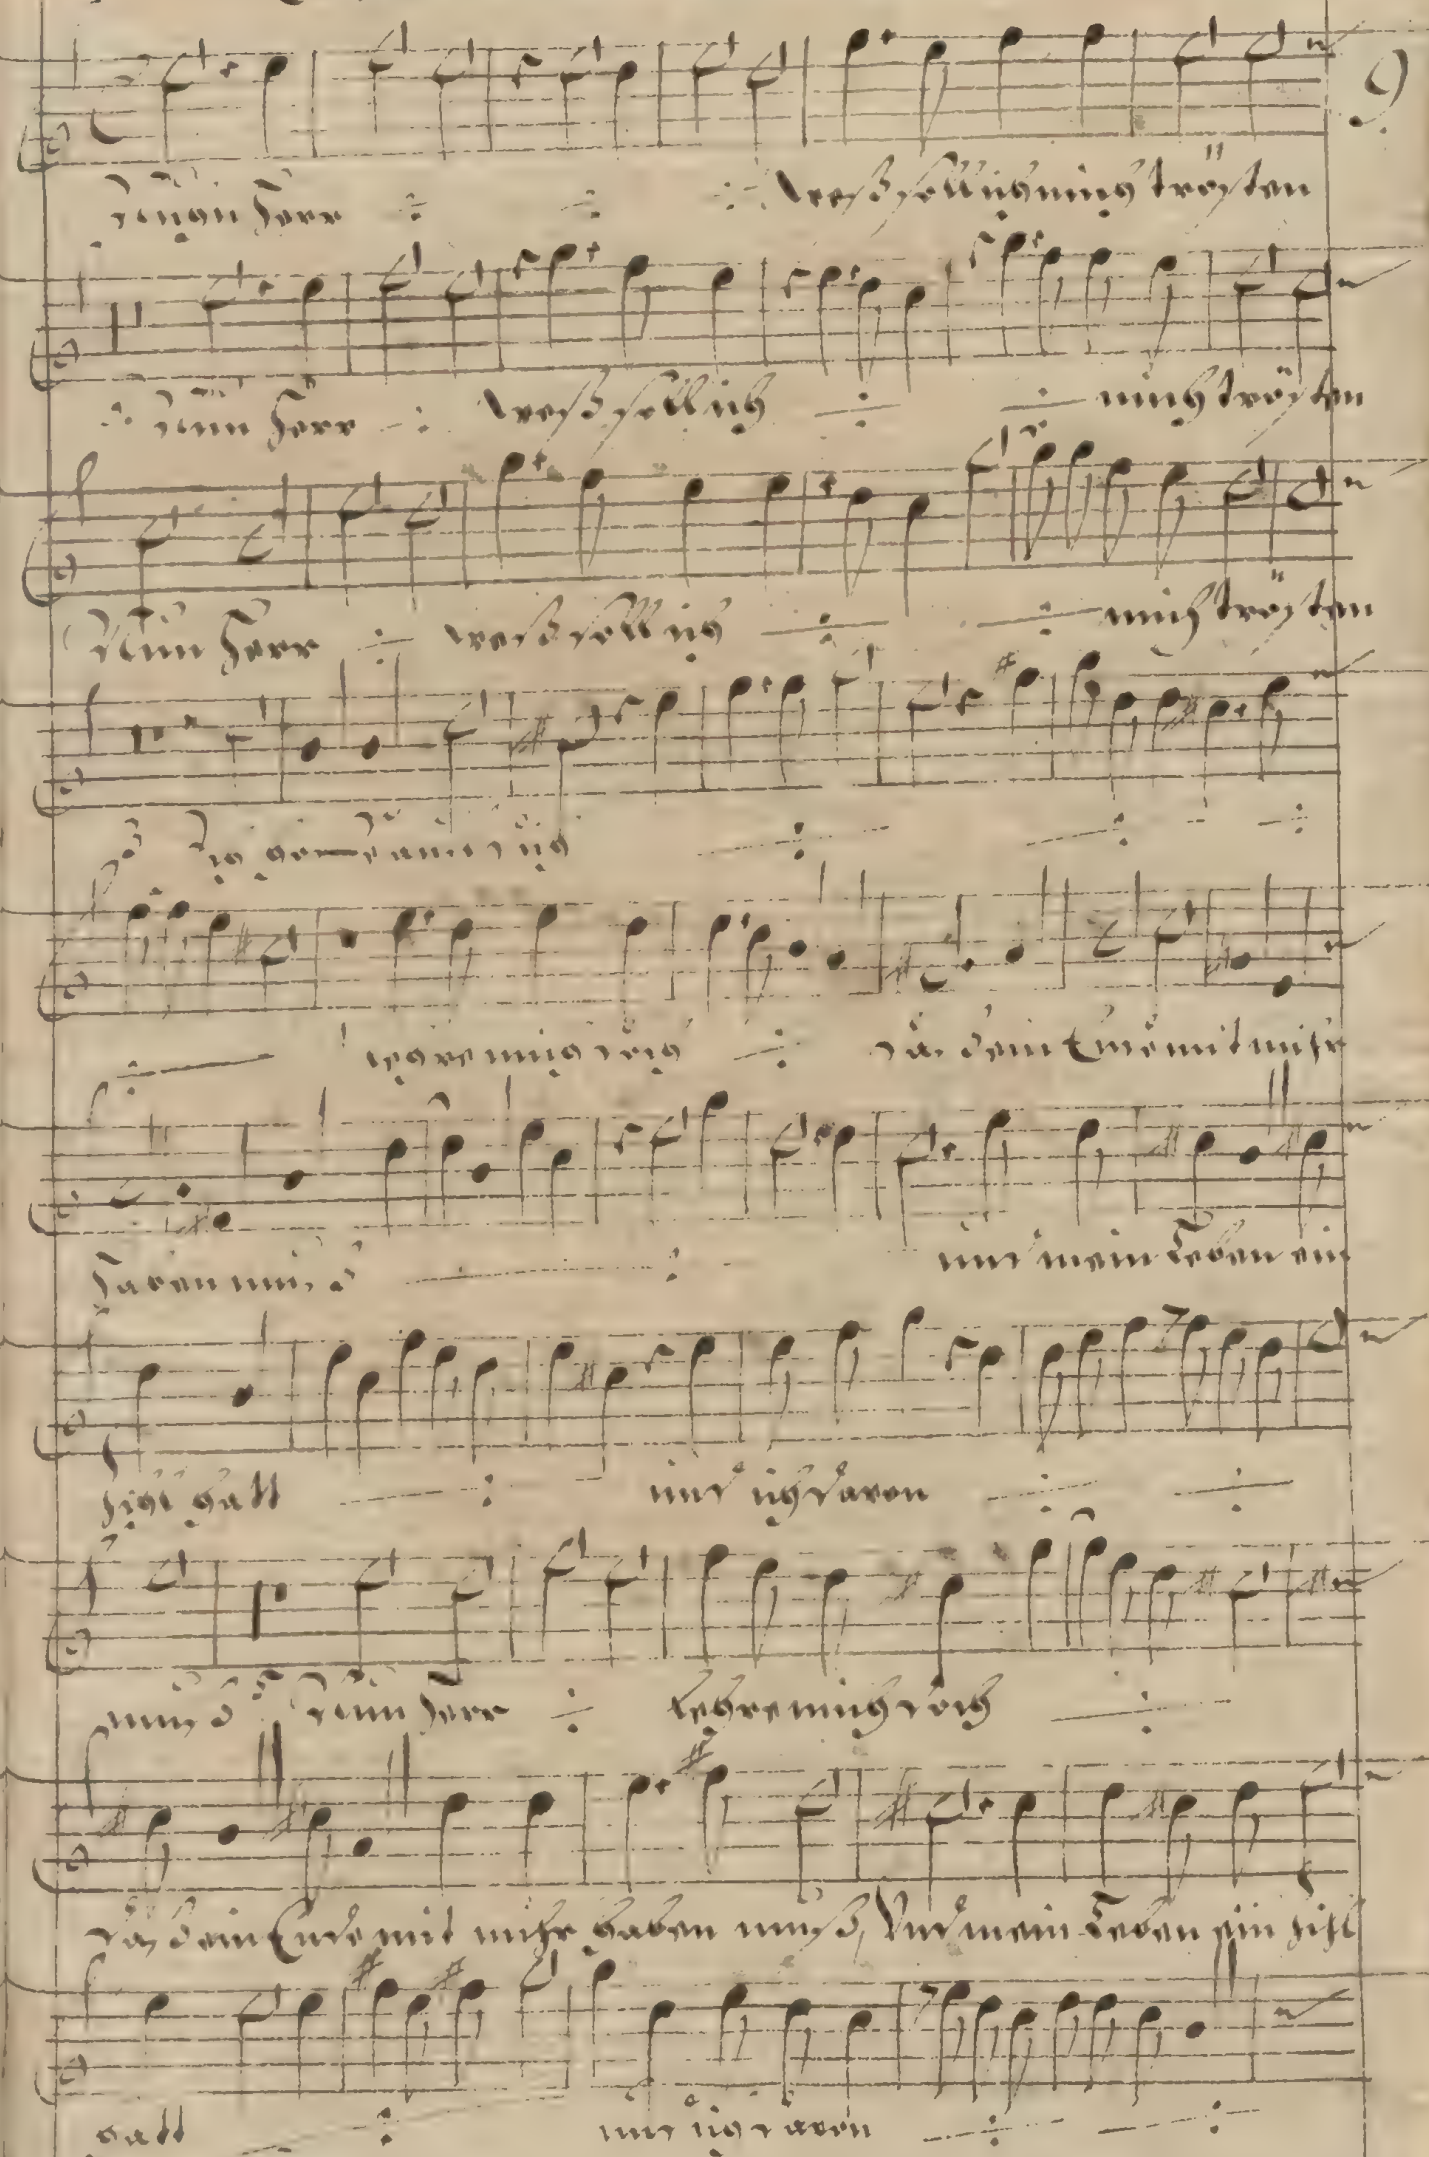 9
Nun Herr ÷ ÷ ÷ weß soll ich mich trösten
÷ Nun Herr ÷ weß soll ich ÷ ÷ mich trösten
Nun Herr ÷ weß soll ich ÷ ÷ mich trösten
÷ ÷ ÷
÷ lehre mich doch ÷ das dein Ende mit mihr
haben muß ÷ und mein Leben ein
Zihl hatt ÷ und ich davon ÷ ÷
muß ÷ Nun Herr ÷ Lehre mich doch ÷
das dein Ende mit mihr haben muß, Und mein Leben ein Zihl
hatt ÷ und ich davon ÷ ÷